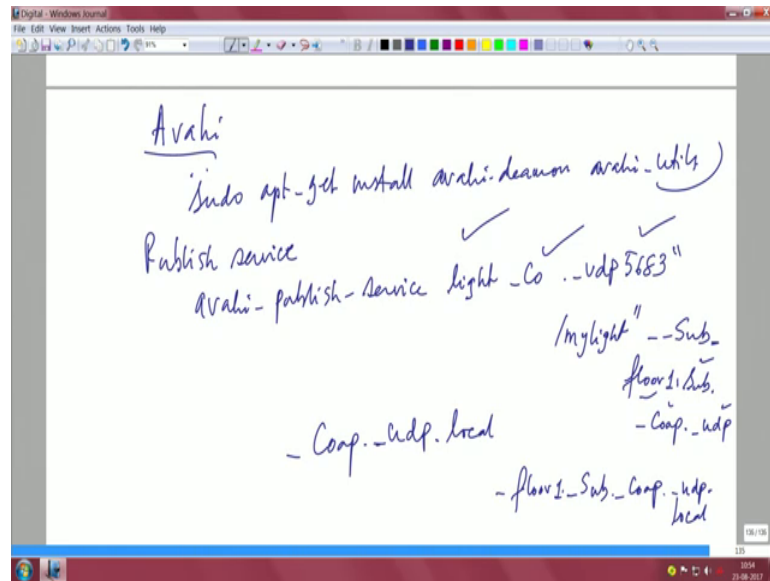 Digital - Windows Journal
File Edit View Insert Actions Tools Help
91%
Avahi
sudo apt-get install avahi-deamon avahi-utils
Publish service
avahi-publish-service light _Co ._udp 5683"
/mylight" --Sub_
floor1.Sub.
_Coap._udp
_Coap._udp.local
_floor1._Sub._Coap._udp.
local
136 / 136
135
1054
23-08-2017